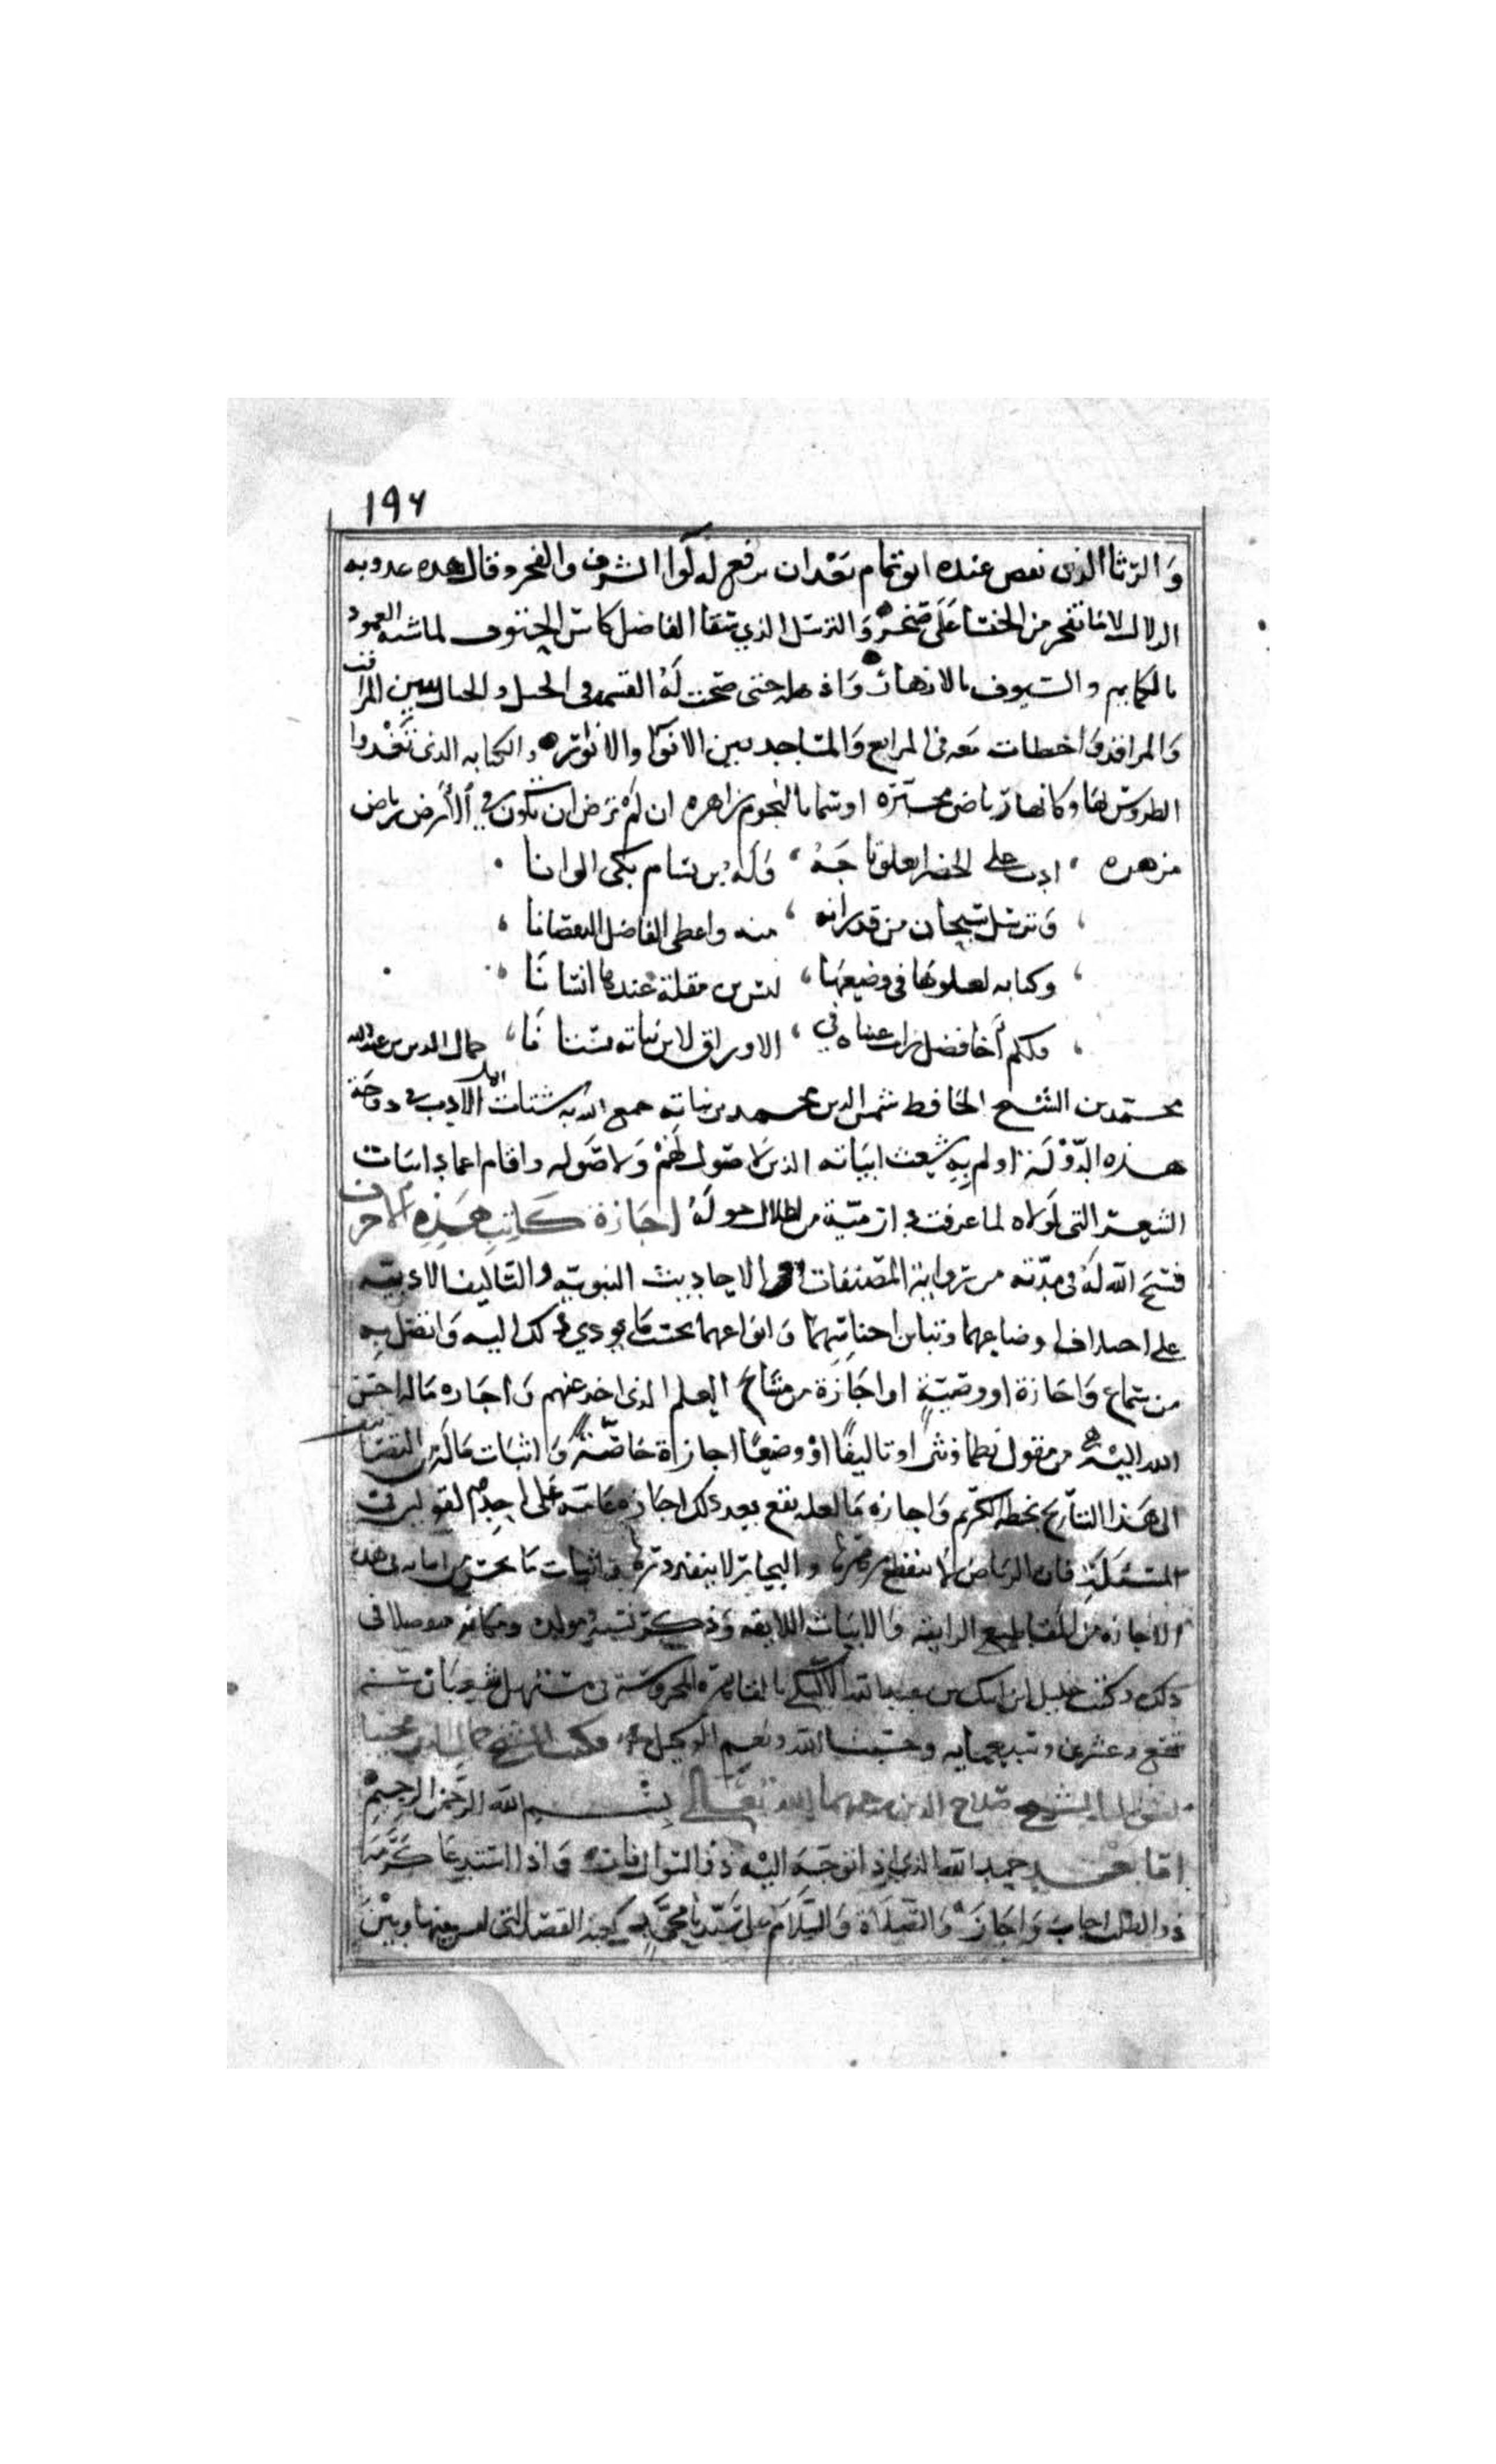 ١٩٦
والرثا الذي نقص عنده ابو تمام بعد ان رفع له لوا الشرف والفخر وقال هذه عذوبة
الزلال لا ما تفجر من الخنسا على صخر والترسل الذي سقا الفاضل كاس الحتوف لما شبه الغمود
بالكمايم والسيوف بالازهار حتى صحت له القسمه في الخيل والخيال بين المراقب
والمراقد واخطات معه في المرابع والمساجد بين الانوا والانوار والكتابه الذي تغدوا
الطروس لها وكانها رياض محبره او سما بالنجوم زاهره ان لم ترض ان تكون في الارض رياض
مزهره ادب على الحضرا يعلو تاجه وله بن بسام بكى الوانا
وترسل سبحان من قد زانه منه واعطى الفاضل النقصانا
وكتابه لعلوها في وضعها ليس بن مقلة عندها انسانا
ولكم أخا فضل رات عيناه في الاوراق لابن نباته بستانا جمال الدين بن عبد الله
محمد بن الشيخ الحافظ شمس الدين محمد بن نباته جمع الله به شتات الادب في دوحة
هذه الدولة ولم به شعث ابياته الذين لا صول لهم ولا صوله واقام اعماد ابيات
الشعر التي لولاه لما عرفت دار مية من اطلال خوله اجازة كاتب هذه الاحرف
فسح الله له في مدته من رواية المصنفات الاحاديث النبويه والتاليف الادبيه
على اختلاف اوضاعها وتباين اجناسهما وانواعهما بحسب ما يودي ذلك اليه واتصل به
من سماع واجازة او وصية او اجازة من مشايخ العلم الذي اخذ عنهم واجازه ماله احسن
الله اليه من مقول نظما ونثرا او تاليفا او وضعا اجازة خاصة واثبات ماله من التصانيف
الى هذا التاريخ بخطه الكريم واجازه ما لعله يقع بعد ذلك اجازه عامة على احد القولين في
المسئلة فان الرياض لا ينقطع زهرها والبحار لا ينفد درها واثبات ما يحسن ايراده في هذه
الاجازه من المقاطيع الرايقة والابيات اللايقه وذكر نسبه ومولده ومكانه متفضلا في
ذلك وكتب خليل ابن ايبك بن عبد الله بالقاهرة المحروسة في مستهل شعبان سنه
تسع وعشرين وسبعمايه وحسبنا الله ونعم الوكيل فكتب الشيخ جمال الدين مجيبا
لسؤال الشيخ صلاح الدين رحمهما الله تعالى بسم الله الرحمن الرحيم
اما بعد حمد الله الذي اذا توجه اليه ذو السوال فاز واذا استدعا كرمه
ذو الطلب اجاب واجاز والصلاة والسلام على سيدنا محمد كعبة القصد التي ليس بينها وبين